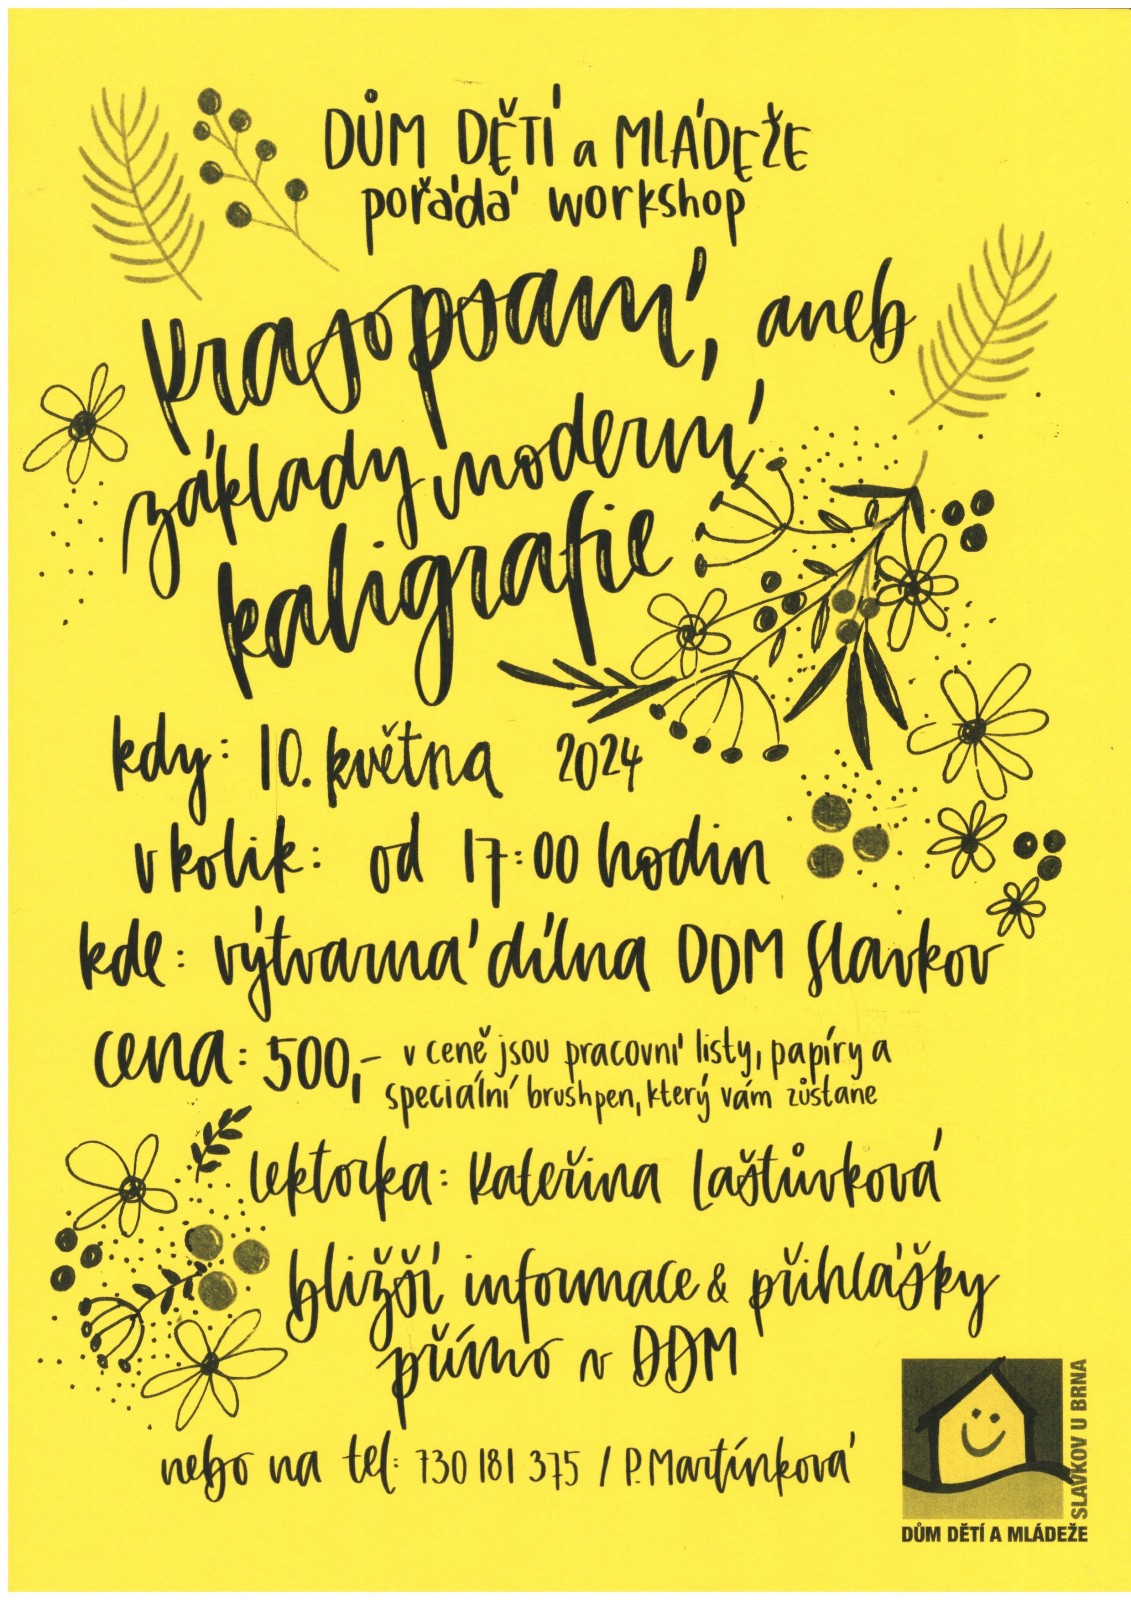 DŮM DĚTÍ a MLÁDEŽE
pořádá workshop
krasopsaní, aneb
základy moderní
kaligrafie
kdy: 10. května 2024
v kolik: od 17:00 hodin
kde: výtvarná dílna DDM Slavkov
cena: 500,- v ceně jsou pracovní listy, papíry a
speciální brushpen, který vám zůstane
lektorka: Kateřina Laštůvková
bližší informace & přihlášky
přímo v DDM
nebo na tel: 730 181 375 / P. Martínková
SLAVKOV U BRNA
DŮM DĚTÍ A MLÁDEŽE